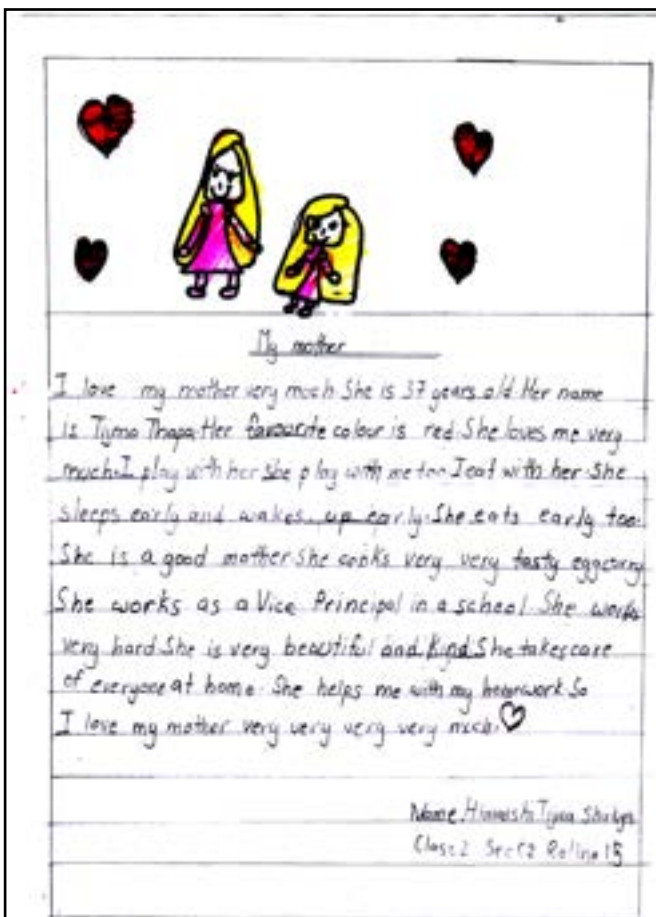 My mother
I love my mother very much She is 37 years old Her name
is Tyma Thapa Her favourite colour is red. She loves me very
much. I play with her she play with me too I eat with her. She
sleeps early and wakes up early. She eats early too.
She is a good mother. She cooks very very tasty eggcurry
She works as a Vice Principal in a school She works
very hard She is very beautiful and Kind She takes care
of everyone at home. She helps me with my homework So
I love my mother very very very very much.
Name
Class 2 Sec Roll no 15